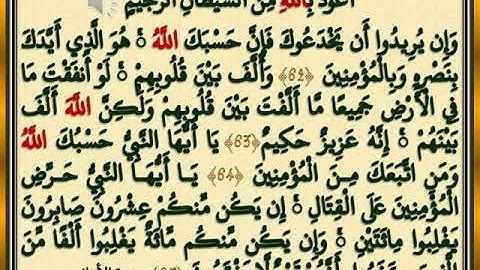 أعوذ بِاللَّهِ مِنَ الشَّيْطَانِ الرَّجِيمِ
وَإِن يُرِيدُوا أَن يَخْدَعُوكَ فَإِنَّ حَسْبَكَ اللَّهُ ۚ هُوَ الَّذِي أَيَّدَكَ
بِنَصْرِهِ وَبِالْمُؤْمِنِينَ ﴿62﴾ وَأَلَّفَ بَيْنَ قُلُوبِهِمْ ۚ لَوْ أَنفَقْتَ مَا
فِي الْأَرْضِ جَمِيعًا مَّا أَلَّفْتَ بَيْنَ قُلُوبِهِمْ وَلَٰكِنَّ اللَّهَ أَلَّفَ
بَيْنَهُمْ ۚ إِنَّهُ عَزِيزٌ حَكِيمٌ ﴿63﴾ يَا أَيُّهَا النَّبِيُّ حَسْبُكَ اللَّهُ
وَمَنِ اتَّبَعَكَ مِنَ الْمُؤْمِنِينَ ﴿64﴾ يَا أَيُّهَا النَّبِيُّ حَرِّضِ
الْمُؤْمِنِينَ عَلَى الْقِتَالِ ۚ إِن يَكُن مِّنكُمْ عِشْرُونَ صَابِرُونَ
يَغْلِبُوا مِائَتَيْنِ ۚ وَإِن يَكُن مِّنكُم مِّائَةٌ يَغْلِبُوا أَلْفًا مِّنَ